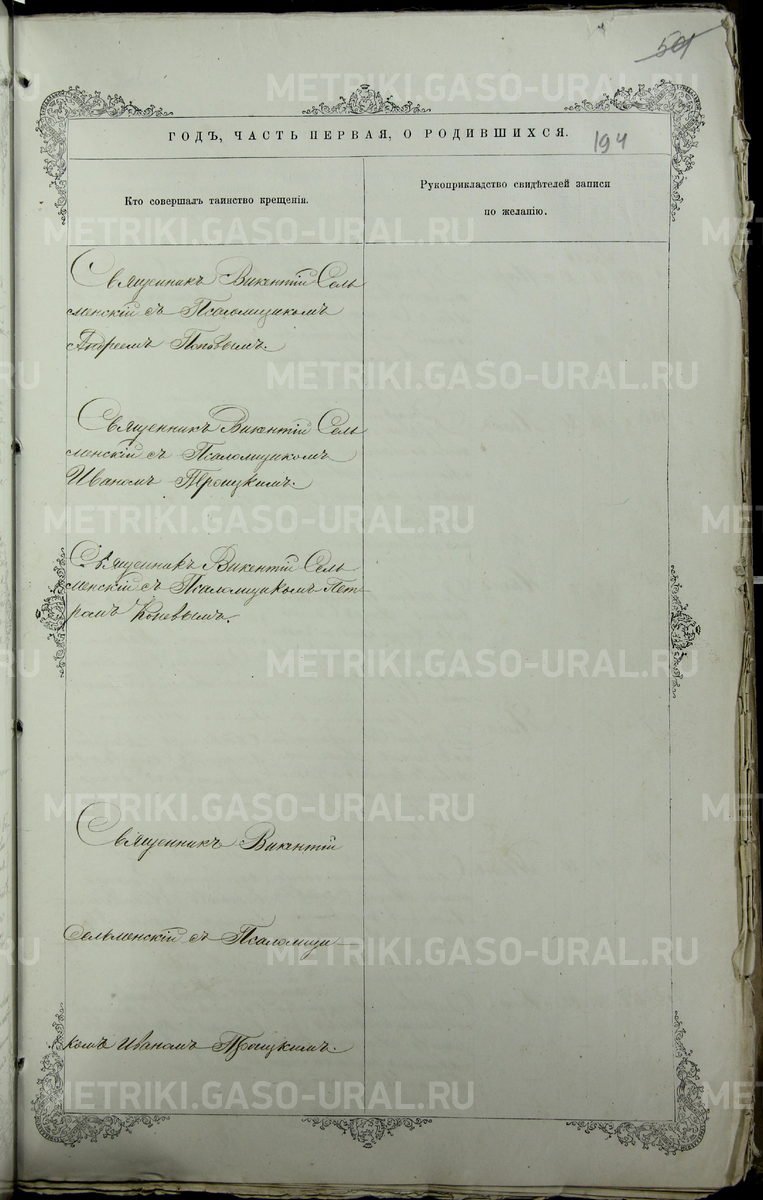 501
194
ГОДЪ, ЧАСТЬ ПЕРВАЯ, О РОДИВШИХСЯ.
Кто совершалъ таинство крещенія.
Рукоприкладство свидѣтелей записи
по желанію.
Священникъ Викентій Сель
менскій съ Псаломщикомъ
Андреемъ Поповымъ.
Священникъ Викентій Сель
менскій съ Псаломщикомъ
Иваномъ Троицкимъ.
Священникъ Викентій Сель
менскій съ Псаломщикомъ Пет-
ромъ Коневымъ.
Священникъ Викентій
Сельменскій съ Псаломщи-
комъ Иваномъ Троицкимъ.
METRIKI.GASO-URAL.RU